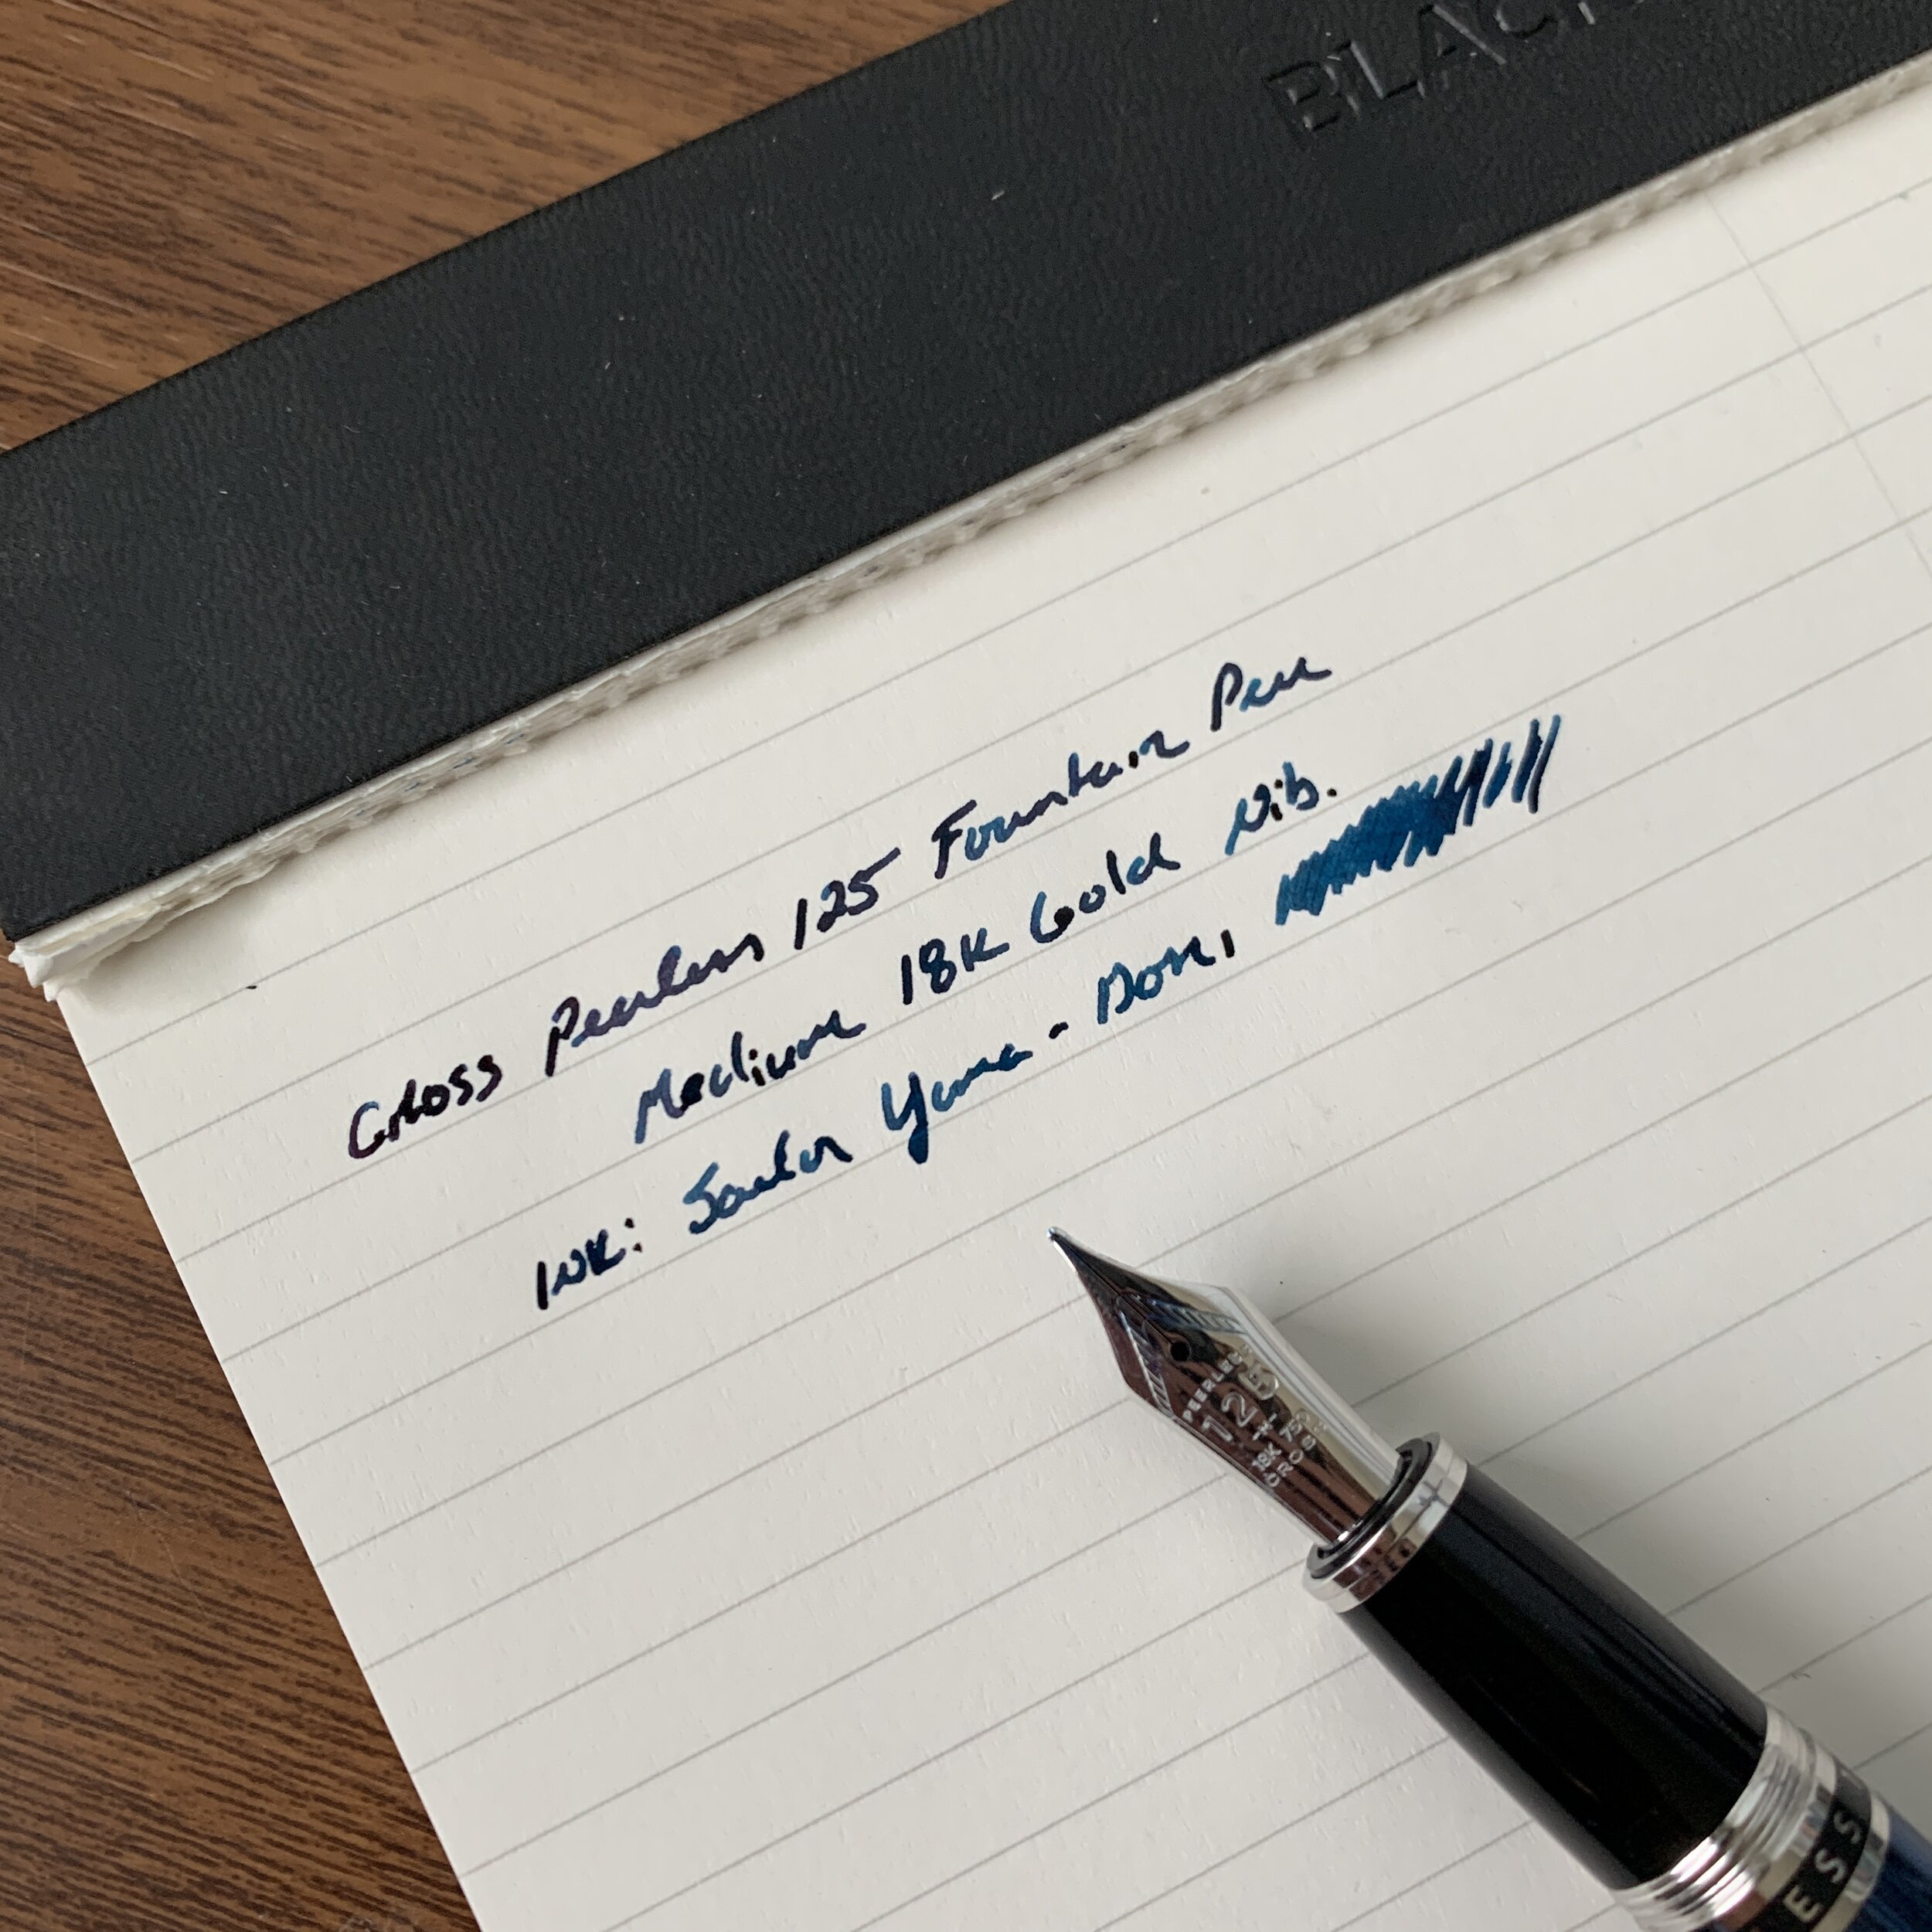 BLAC
Cross Peerless 125 Fountain Pen
Medium 18K Gold Nib.
INK: Sailor Yama-Dori
PEERLESS
125
18K 750
CROSS
ESS